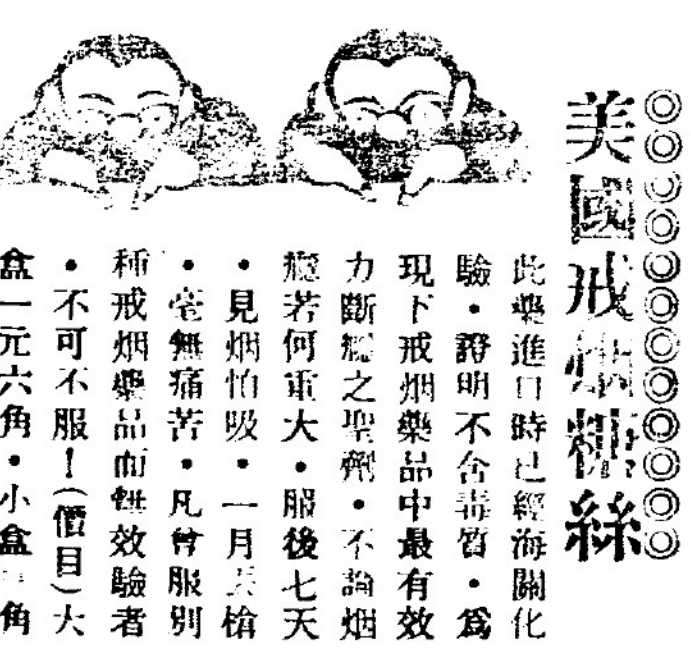 美國戒烟糖絲
此藥進口時已經海關化
驗・證明不含毒質・爲
現下戒烟藥品中最有效
力斷癮之聖劑・不論烟
癮若何重大・服後七天
・見烟怕吸・一月丟槍
・毫無痛苦・凡曾服別
種戒烟藥品而無效驗者
・不可不服！（價目）大
盒一元六角・小盒 角